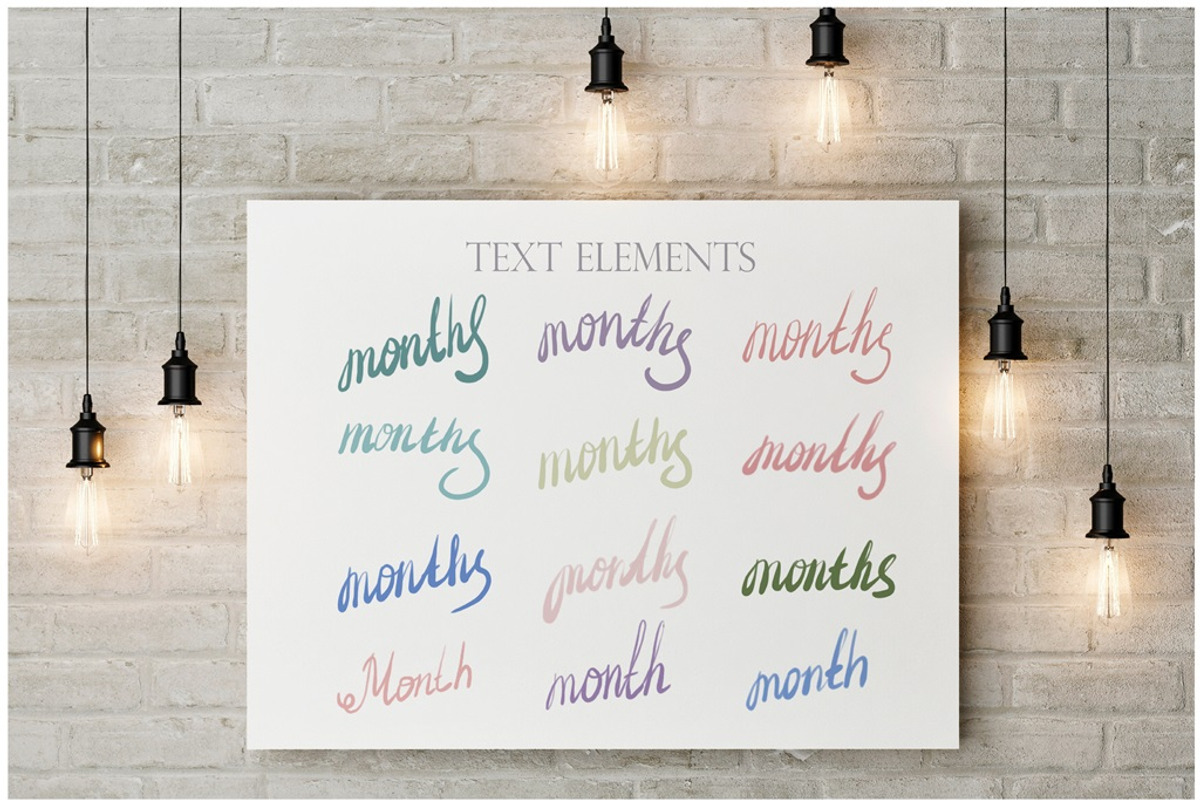 TEXT ELEMENTS
months months months
months months months
months months months
Month month month